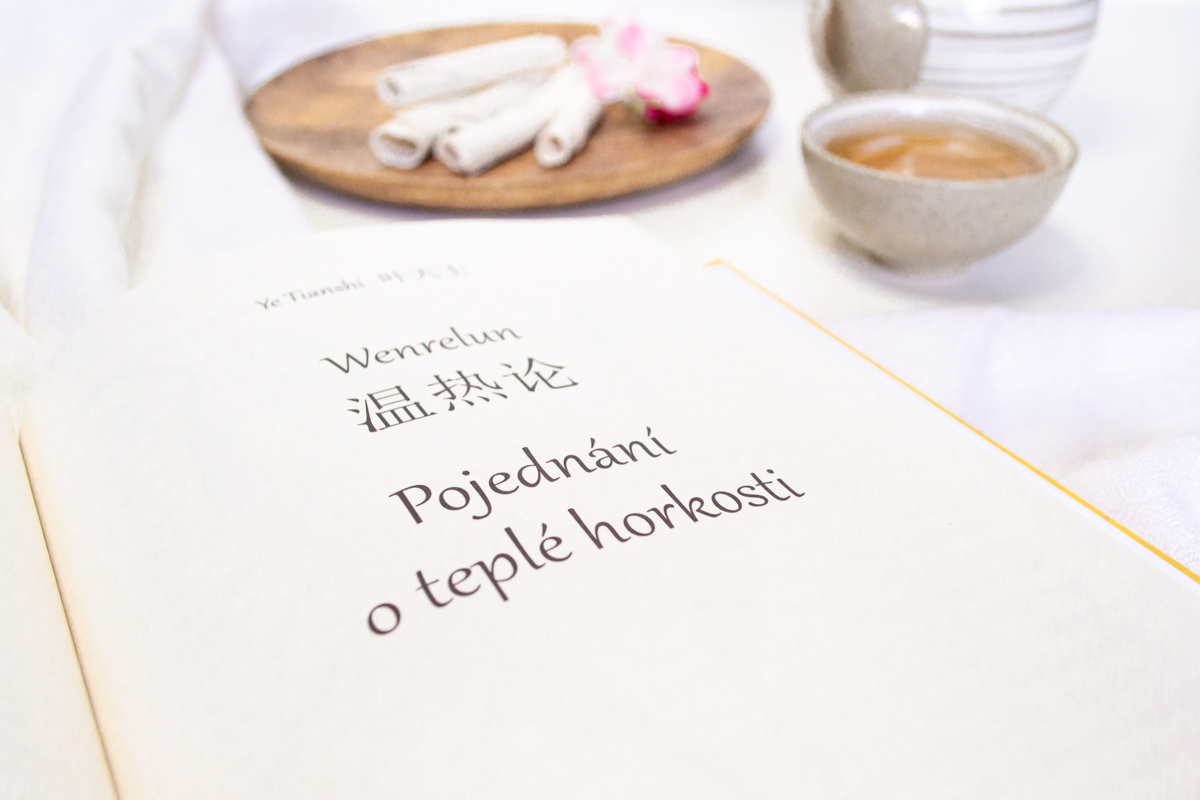 Ye Tianshi 叶天士
Wenrelun
温热论
Pojednání
o teplé horkosti